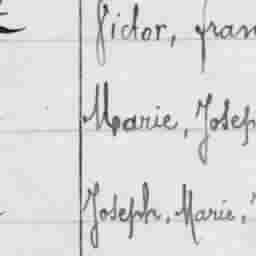 Victor, fran
Marie, Josep
Joseph, Marie,